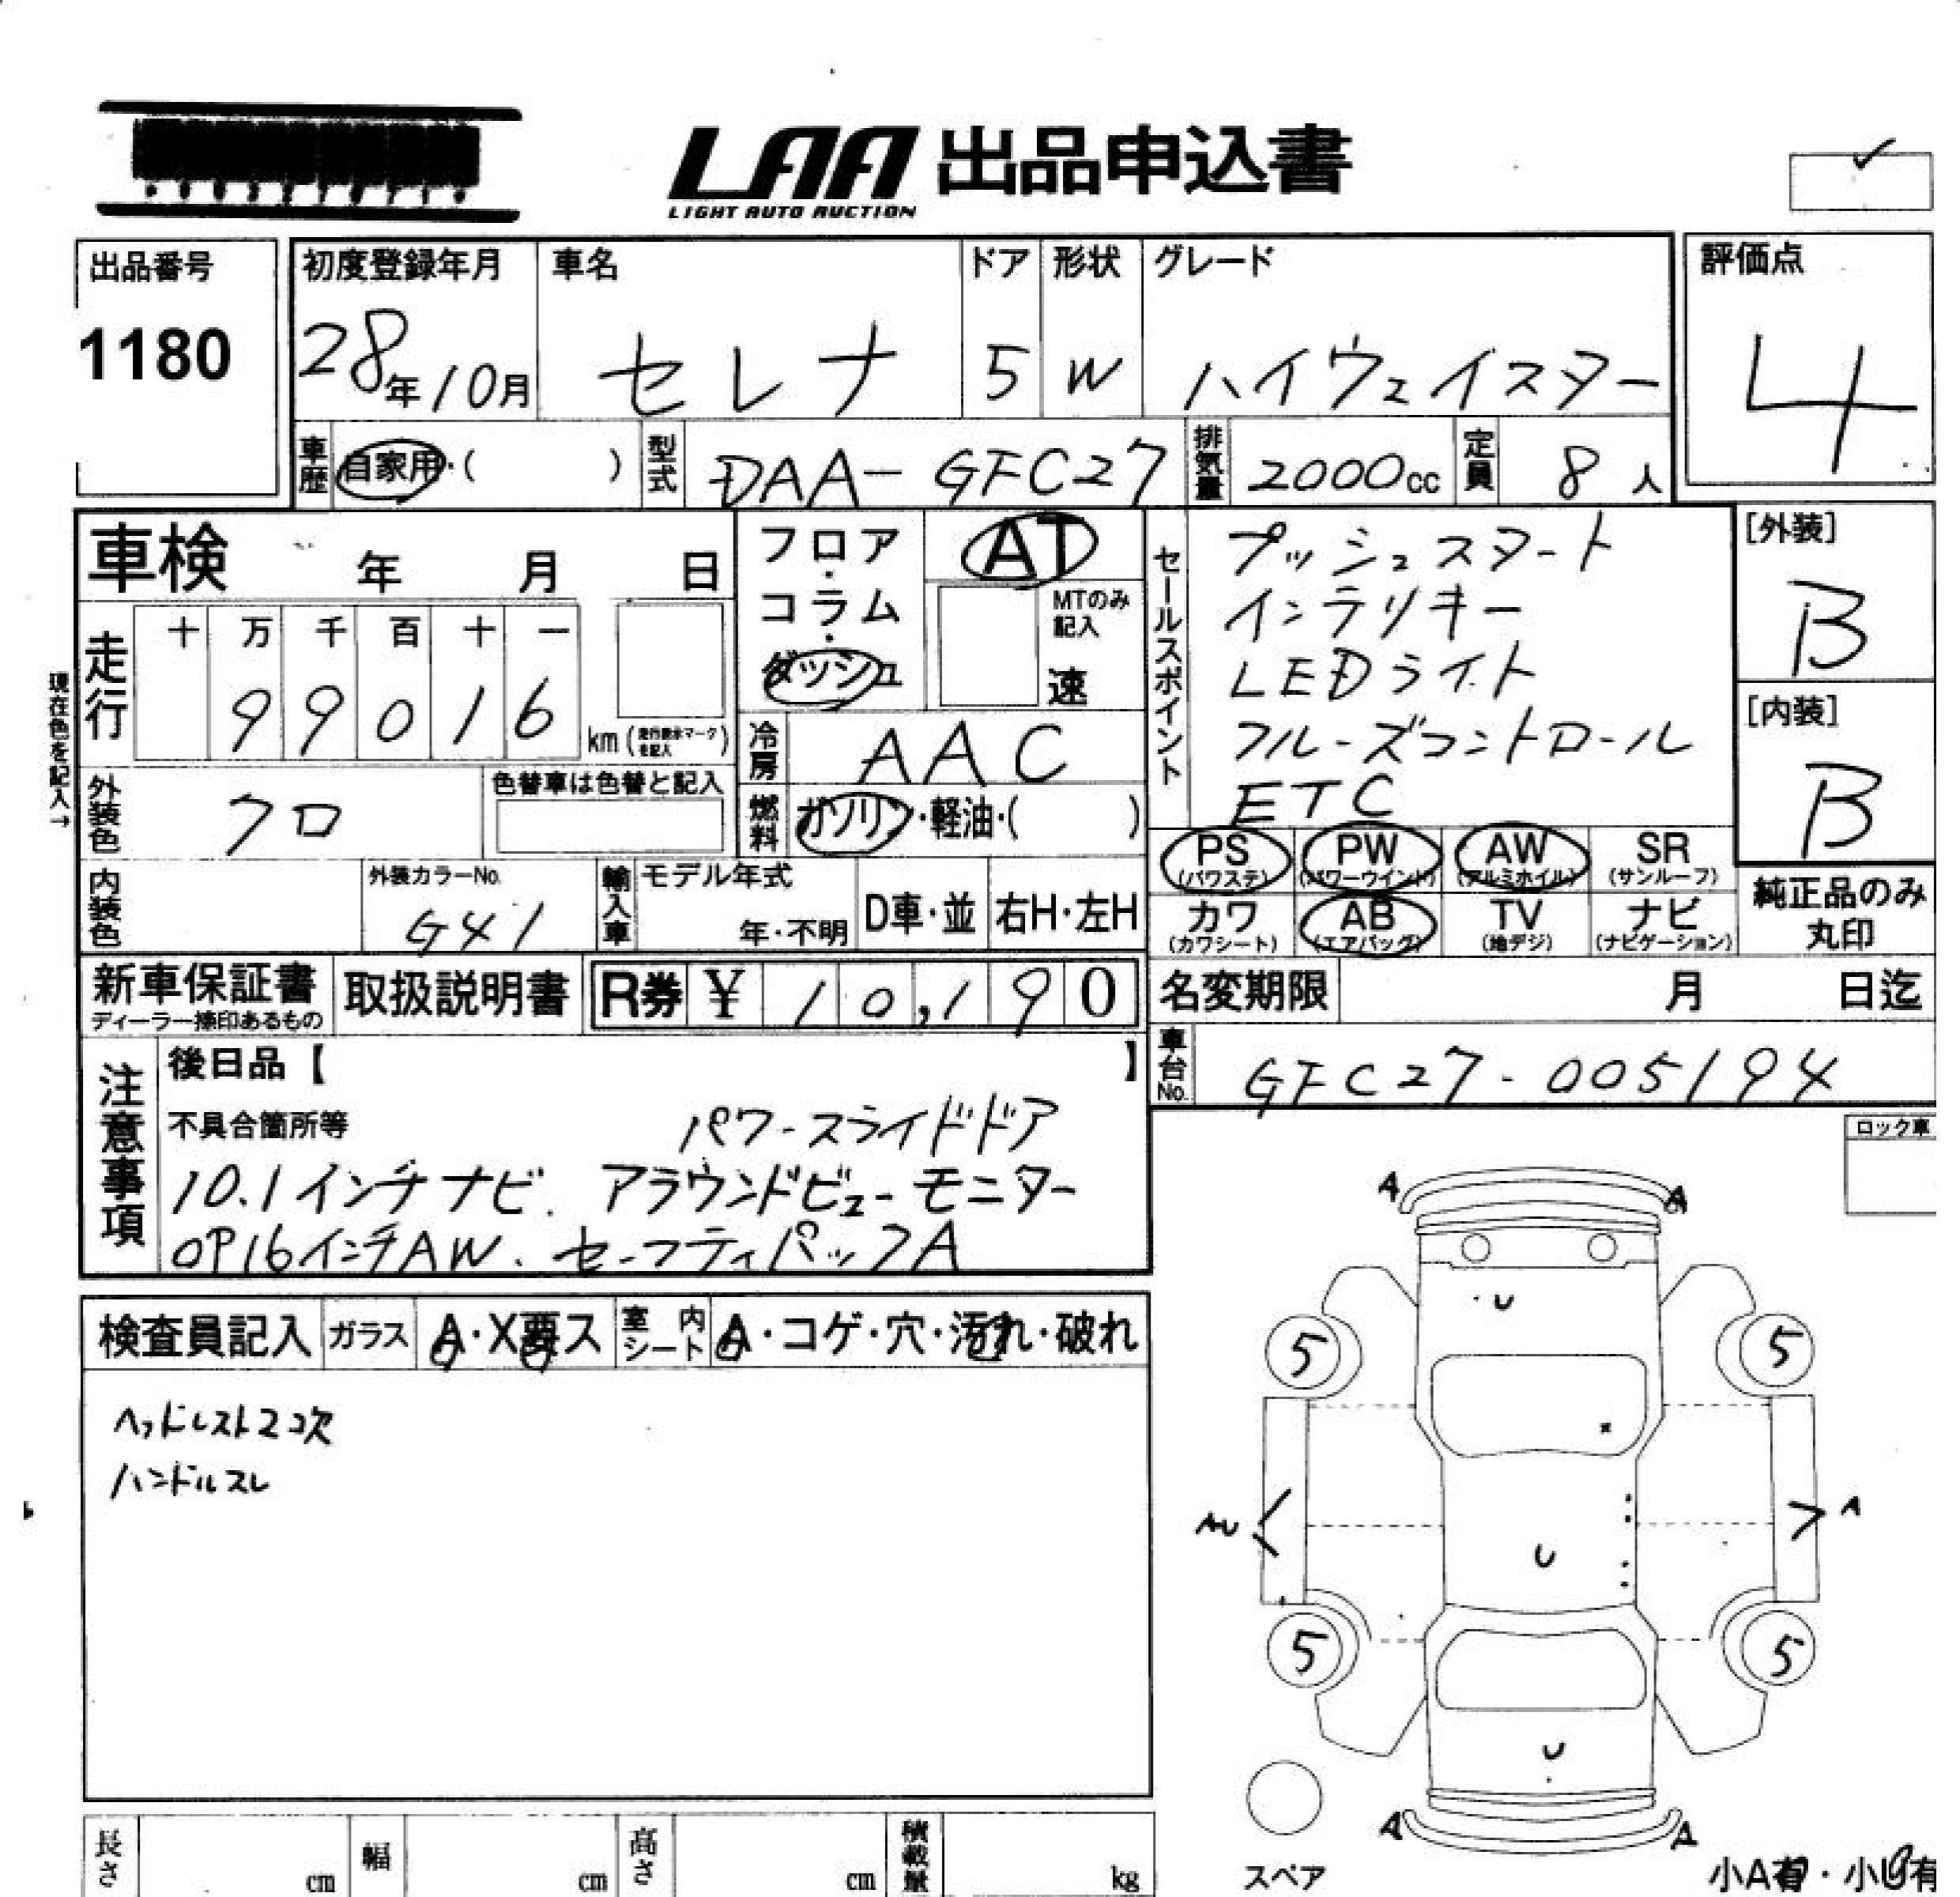 LAA 出品申込書
LIGHT AUTO AUCTION
出品番号
1180
初度登録年月
28年10月
車名
セレナ
ドア
5
形状
W
グレード
ハイウェイスター
評価点
4
車歴
自家用・( )
型式
DAA-GFC27
排気量
2000cc
定員
8人
車検 年 月 日
フロア・コラム・ダッシュ
AT
MTのみ記入
速
走行
十 万 千 百 十 一
99016 km (走行表示マークを記入)
現在色を記入→
外装色
クロ
色替車は色替と記入
冷房
AAC
燃料
ガソリン・軽油・( )
内装色
外装カラーNo.
G41
輸入車
モデル年式
年・不明
D車・並
右H・左H
セールスポイント
プッシュスタート
インテリキー
LEDライト
クルーズコントロール
ETC
[外装]
B
[内装]
B
PS (パワステ)
PW (パワーウインド)
AW (アルミホイル)
SR (サンルーフ)
カワ (カワシート)
AB (エアバッグ)
TV (地デジ)
ナビ (ナビゲーション)
純正品のみ
丸印
新車保証書
ディーラー捺印あるもの
取扱説明書
R券 ¥ 10,190
名変期限 月 日迄
車台No.
GFC27-005194
注意事項
後日品【 】
不具合箇所等
パワースライドドア
10.1インチナビ. アラウンドビューモニター
OP16インチAW. セーフティパックA
ロック車
検査員記入
ガラス
A・X要ス
室内シート
A・コゲ・穴・汚れ・破れ
ヘッドレスト2コ欠
ハンドルスレ
A A
U
5 5
AU A
U
5 5
U
A A
スペア
小A有・小U有
長さ cm
幅 cm
高さ cm
積載量 kg